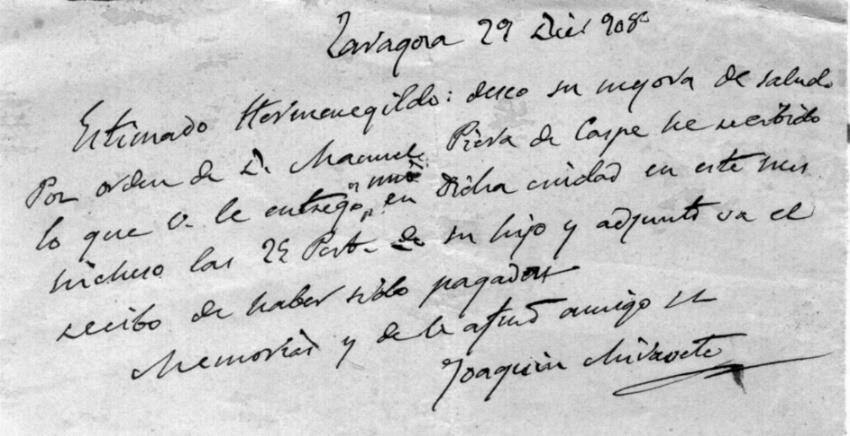 Zaragoza 29 Dic. 908
Estimado Hermenegildo: deseo su mejora de salud
Por orden de D. Manuel Piera de Caspe he recibido
lo que V. le entregó en dicha ciudad en este mes
incluso las 25 Pts. de su hijo y adjunto va el
recibo de haber sido pagadas
Memorias y de Vd. afmo amigo
Joaquin